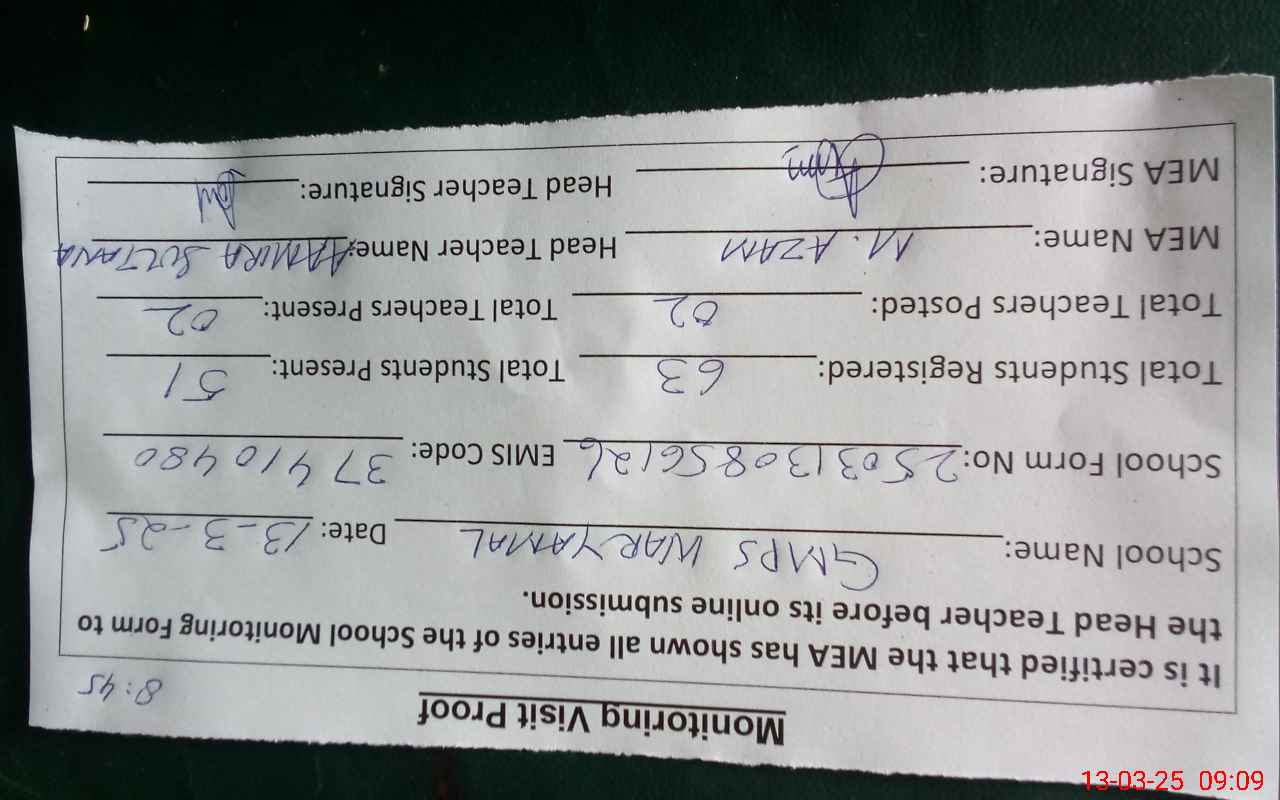 Monitoring Visit Proof
8:45
It is certified that the MEA has shown all entries of the School Monitoring Form to
the Head Teacher before its online submission.
School Name: GMPS WARYAMAL Date: 13-3-25
School Form No: 2503130856126 EMIS Code: 37410480
Total Students Registered: 63 Total Students Present: 51
Total Teachers Posted: 02 Total Teachers Present: 02
MEA Name: M. AZAM Head Teacher Name: AAMIRA SULTANA
MEA Signature: Head Teacher Signature:
13-03-25 09:09